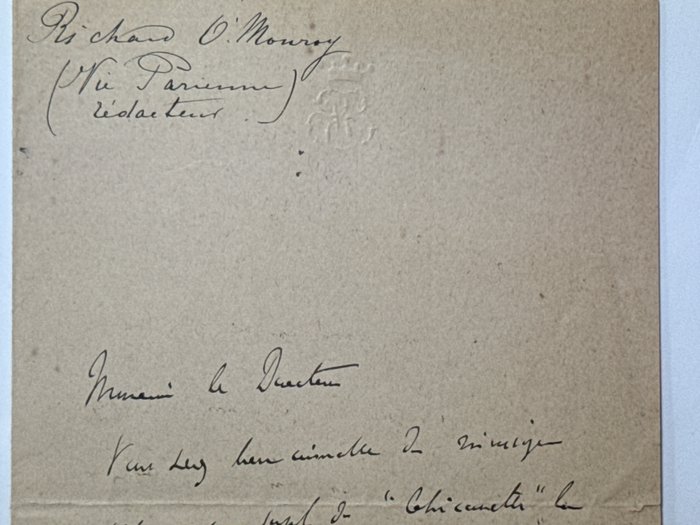 Richard O'Monroy
(Vie Parisienne)
rédacteur.
Monsieur le Directeur
Vous seriez bien aimable de
de "Chicanette" la